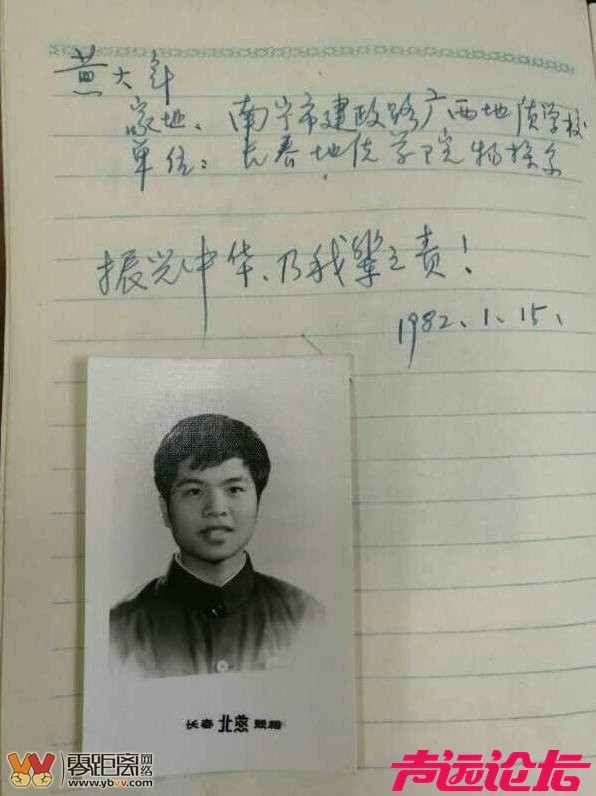 黄大年
家地：南宁市建政路广西地质学校
单位：长春地质学院物探系
振兴中华、乃我辈之责！
1982、1、15、
长春 北燕 照相
零距离网络
www.ybvv.com
声远论坛